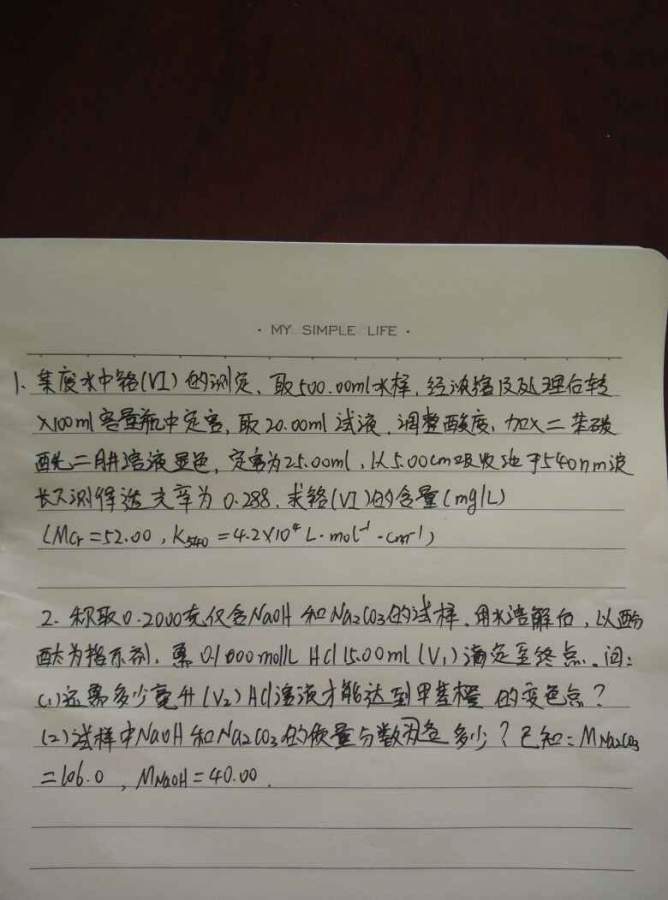 · MY SIMPLE LIFE ·
1. 某废水中铬(VI)的测定,取500.00ml水样,经浓缩及处理后转
入100ml容量瓶中定容,取20.00ml试液,调整酸度,加入二苯碳
酰二肼溶液显色,定容为25.00ml,以5.00cm吸收池于540nm波
长下测得透光率为0.288,求铬(VI)的含量(mg/L)
(MCr=52.00,K540=4.2×10⁴L·mol⁻¹·cm⁻¹)
2. 称取0.2000克仅含NaOH和Na2CO3的试样,用水溶解后,以酚
酞为指示剂,需0.1000mol/L HCl 15.00ml(V1)滴定至终点,问:
(1)还需多少毫升(V2)HCl溶液才能达到甲基橙的变色点?
(2)试样中NaOH和Na2CO3的质量分数为多少?已知:MNa2CO3
=106.0,MNaOH=40.00.